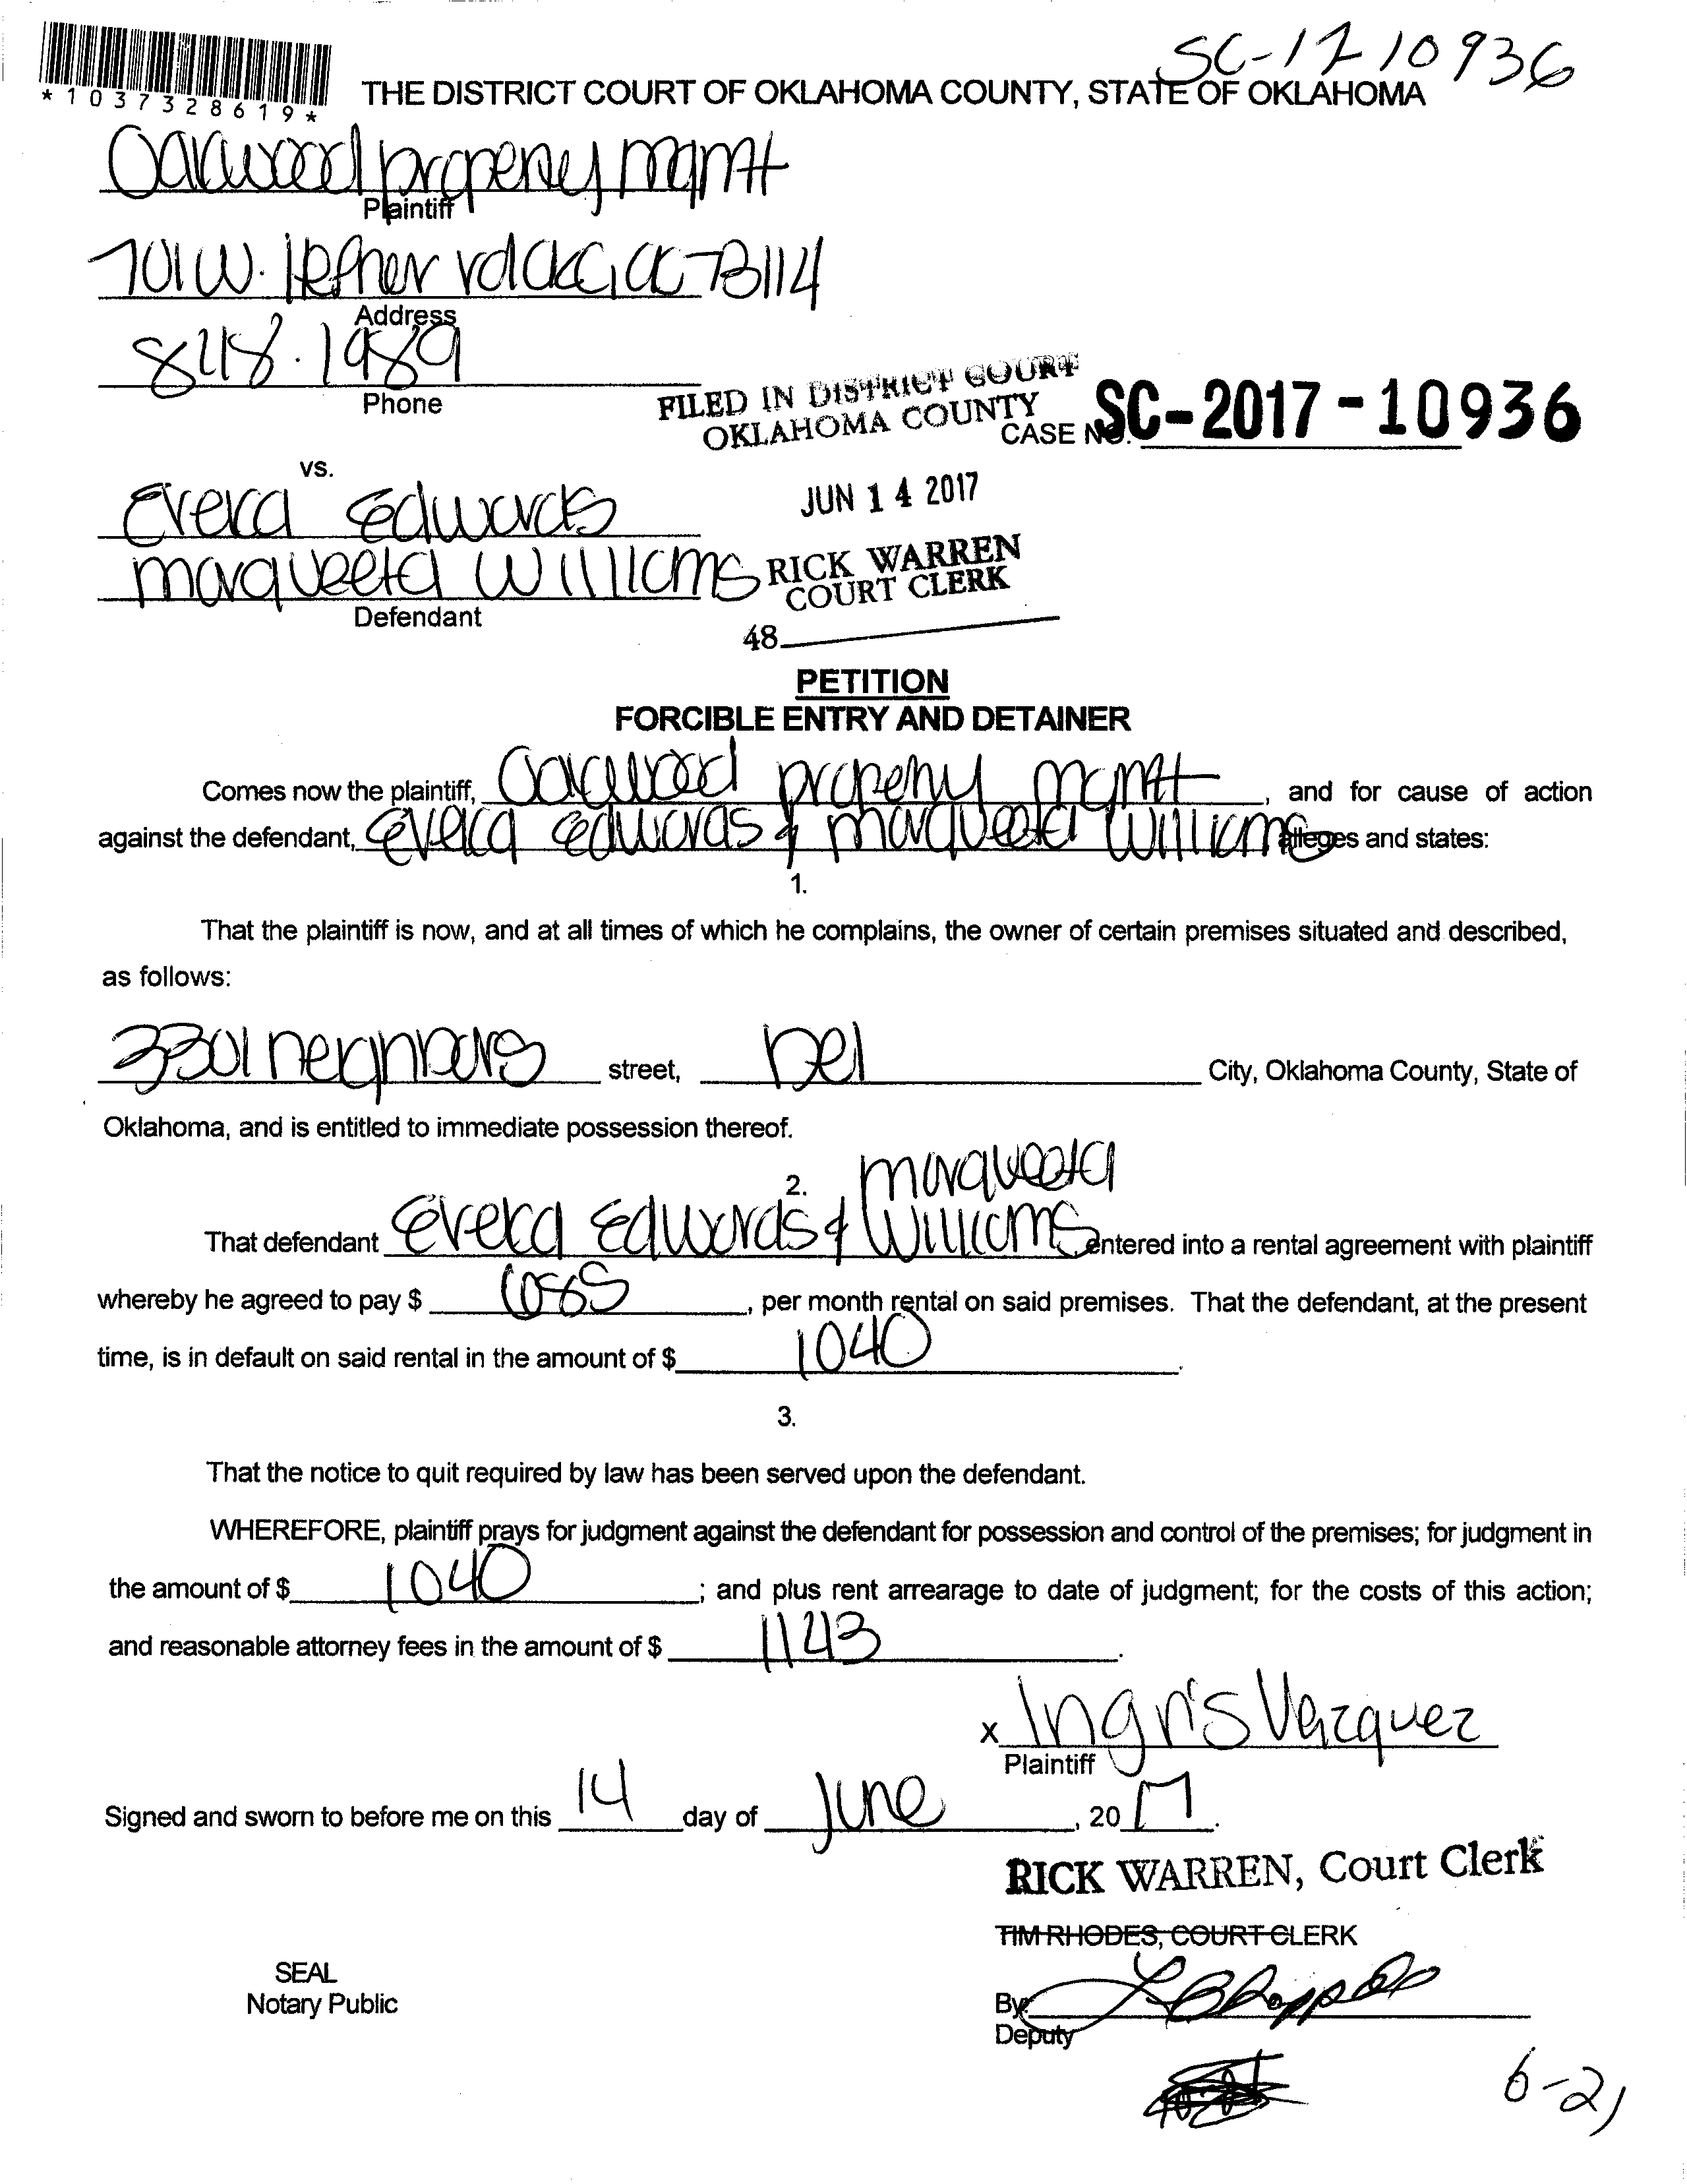 SC-17 10936
*1037328619*
THE DISTRICT COURT OF OKLAHOMA COUNTY, STATE OF OKLAHOMA
Oakwood property mgmt
Plaintiff
701 W. Hefner rd OKC, OK 73114
Address
848.1989
Phone
FILED IN DISTRICT COURT
OKLAHOMA COUNTY
CASE NO. SC-2017-10936
vs.
JUN 14 2017
Evelca Edwards
Marqueeta Williams
RICK WARREN
COURT CLERK
Defendant
48
PETITION
FORCIBLE ENTRY AND DETAINER
Comes now the plaintiff, Oakwood property mgmt, and for cause of action
against the defendant, Edwards & Marqueeta Williams alleges and states:
1.
That the plaintiff is now, and at all times of which he complains, the owner of certain premises situated and described,
as follows:
3301 neighbors street, Del City, Oklahoma County, State of
Oklahoma, and is entitled to immediate possession thereof.
2.
That defendant Edwards & Marqueeta Williams entered into a rental agreement with plaintiff
whereby he agreed to pay $ , per month rental on said premises. That the defendant, at the present
time, is in default on said rental in the amount of $ 1040.
3.
That the notice to quit required by law has been served upon the defendant.
WHEREFORE, plaintiff prays for judgment against the defendant for possession and control of the premises; for judgment in
the amount of $ 1040; and plus rent arrearage to date of judgment; for the costs of this action;
and reasonable attorney fees in the amount of $ 1143.
x Ingris Vazquez
Plaintiff
Signed and sworn to before me on this 14 day of June, 2017.
RICK WARREN, Court Clerk
TIM RHODES, COURT CLERK
SEAL
Notary Public
By:
Deputy
6-21